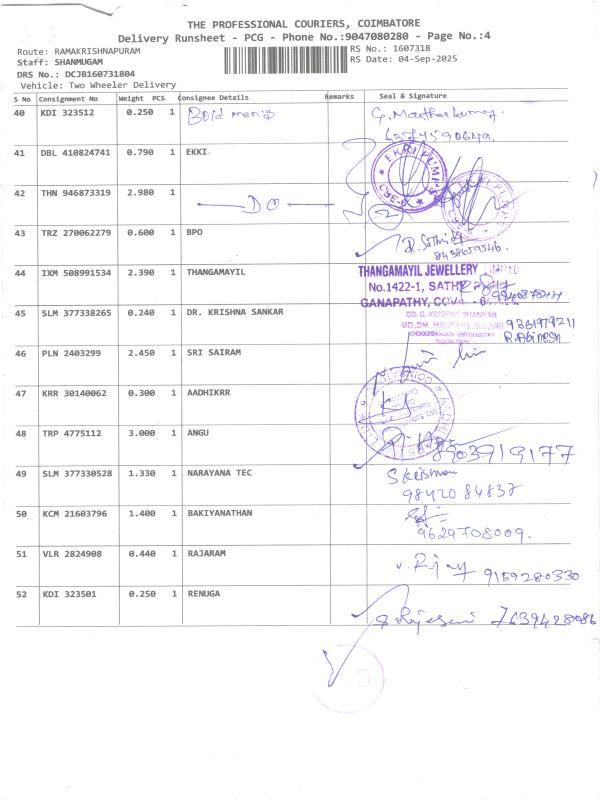 THE PROFESSIONAL COURIERS, COIMBATORE
Delivery Runsheet - PCG - Phone No.:9047080280 - Page No.:4
Route: RAMAKRISHNAPURAM RS No.: 1607318
Staff: SHANMUGAM RS Date: 04-Sep-2025
DRS No.: DCJB160731804
Vehicle: Two Wheeler Delivery
S No Consignment No Weight PCS Consignee Details Remarks Seal & Signature
40 KDI 323512 0.250 1 Bold
41 DBL 410824741 0.790 1 EKKI
EKKI PUMPS
CBE-6
42 THN 946873319 2.980 1 DO
43 TRZ 270062279 0.600 1 BPO
8438659546.
44 IXM 508991534 2.390 1 THANGAMAYIL THANGAMAYIL JEWELLERY LIMITED
No.1422-1, SATHY
GANAPATHY,
45 SLM 377338265 0.240 1 DR. KRISHNA SANKAR DR. G. KRISHNA SHANKAR
9361979211
R.Abinesh
46 PLN 2403299 2.450 1 SRI SAIRAM
47 KRR 30140062 0.300 1 AADHIKRR
48 TRP 4775112 3.000 1 ANGU 8903919177
49 SLM 377330528 1.330 1 NARAYANA TEC
98420 84837
50 KCM 21603796 1.400 1 BAKIYANATHAN
9629708009.
51 VLR 2824908 0.440 1 RAJARAM
9159280330
52 KDI 323501 0.250 1 RENUGA
7639428086